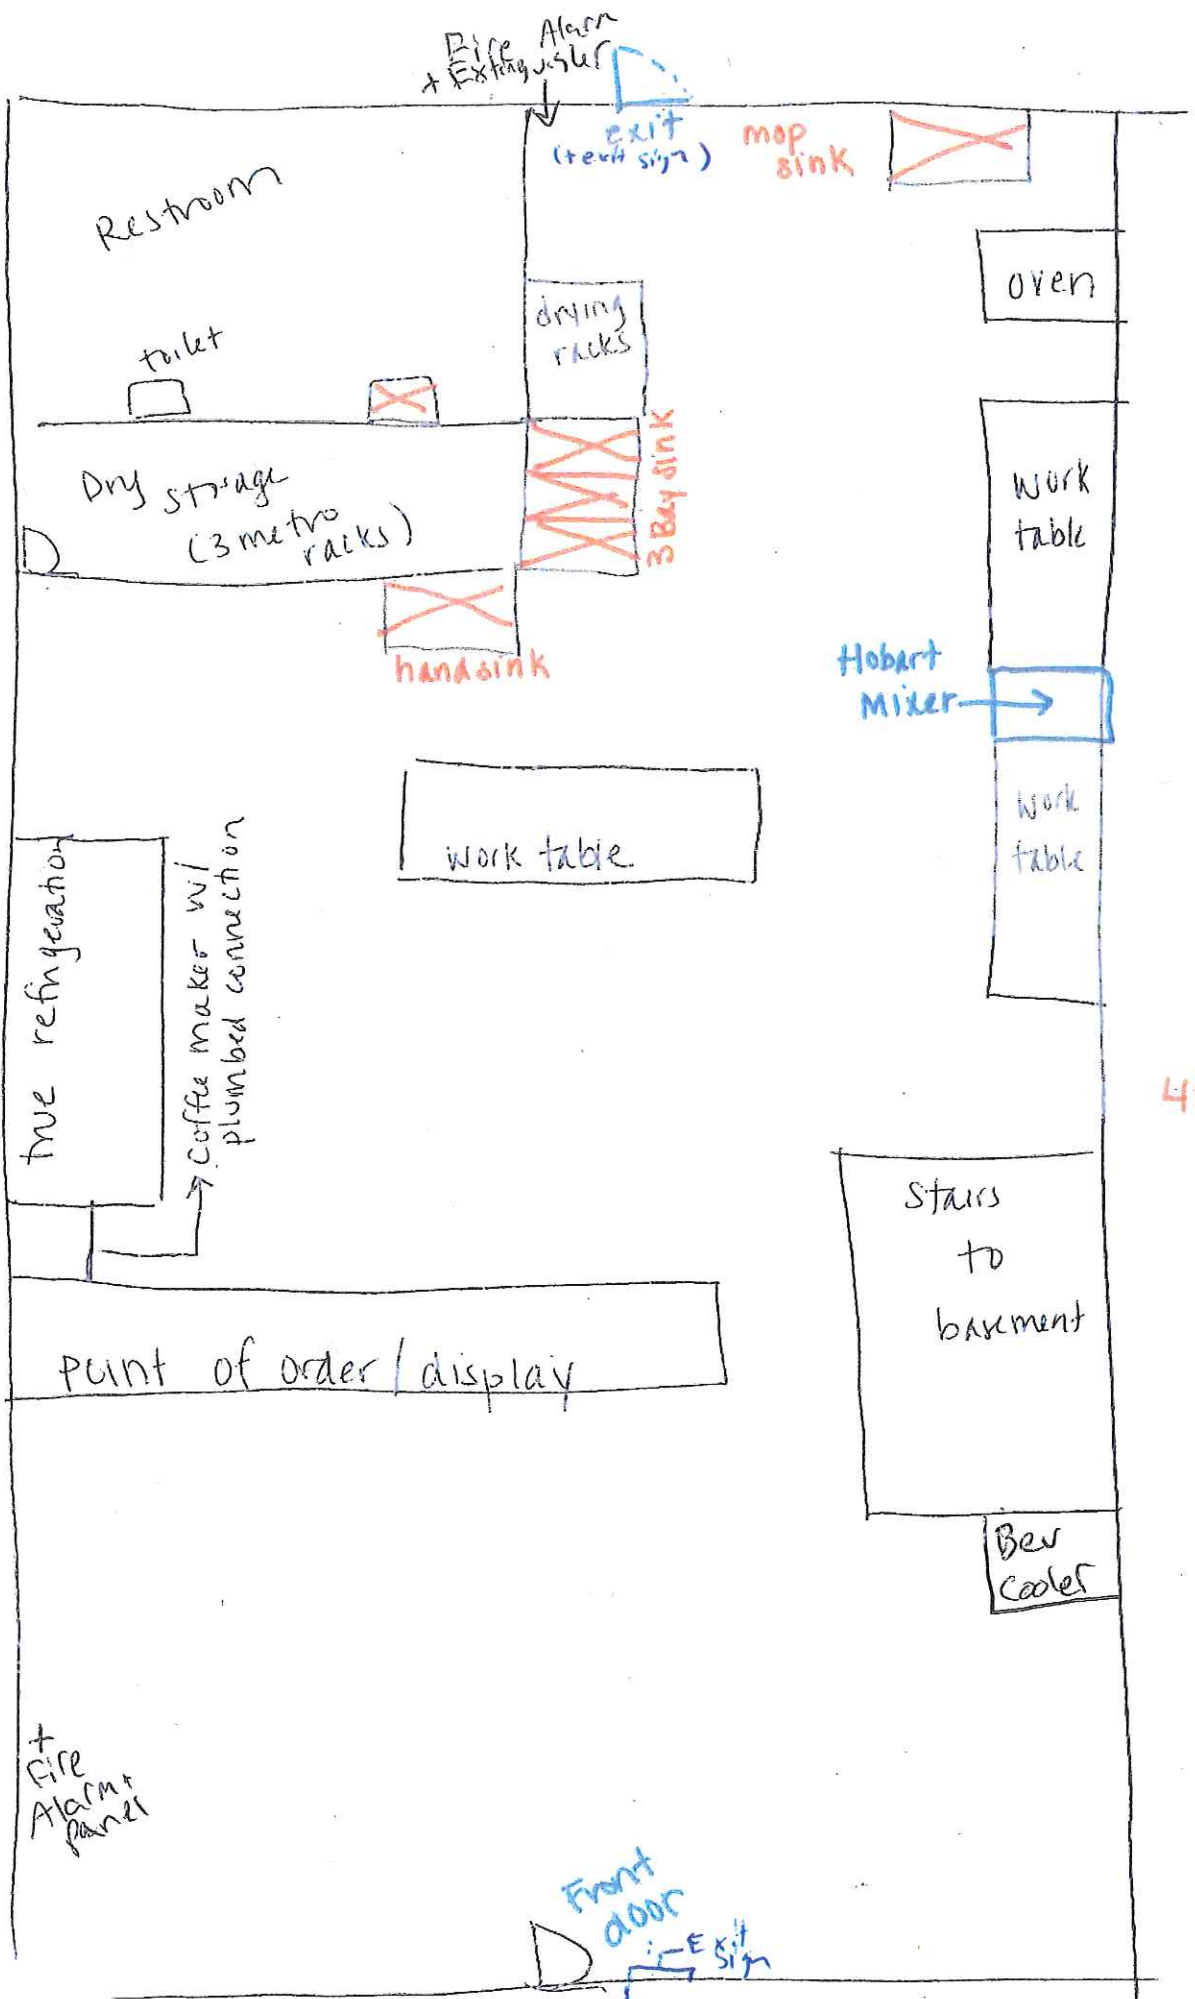 Fire Alarm
+ Extinguisher
exit
(+ exit sign)
mop
sink
Restroom
oven
drying
racks
toilet
3 Bay sink
Dry storage
(3 metro
racks)
work
table
handsink
Hobart
Mixer
work table
work
table
true refrigeration
Coffee maker w/
plumbed connection
4
Stairs
to
basement
point of order / display
Bev
Cooler
+
Fire
Alarm +
panel
Front
door
Exit
Sign